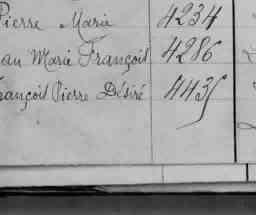 Pierre Marie 4234
an Marie François 4286
rançois Pierre Désiré 4435